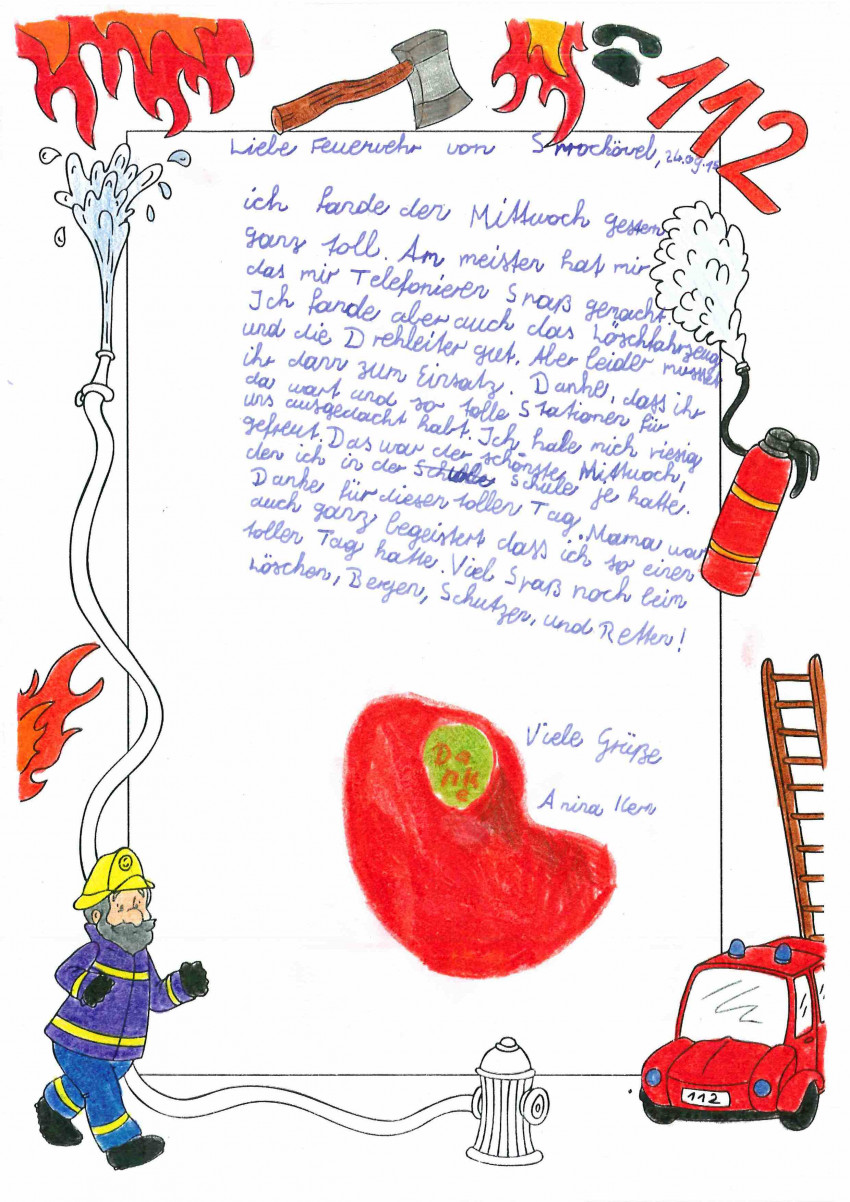 112
Liebe Feuerwehr von Sprochövel, 24.09.15
ich fande den Mittwoch gestern
ganz toll. Am meisten hat mir
das mir Telefonieren Spaß gemacht.
Ich fande aber auch das Löschfahrzeug
und die Drehleiter gut. Aber leider musstet
ihr dann zum Einsatz. Danke, dass ihr
da wart und so tolle Stationen für
uns ausgedacht habt. Ich habe mich riesig
gefreut. Das war der schönste Mittwoch,
den ich in der Schule je hatte.
Danke für diesen tollen Tag. Mama war
auch ganz begeistert dass ich so einen
tollen Tag hatte. Viel Spaß noch beim
Löschen, Bergen, Schutzen, und Retten!
Viele Grüße
Danke
Anina Kern
112